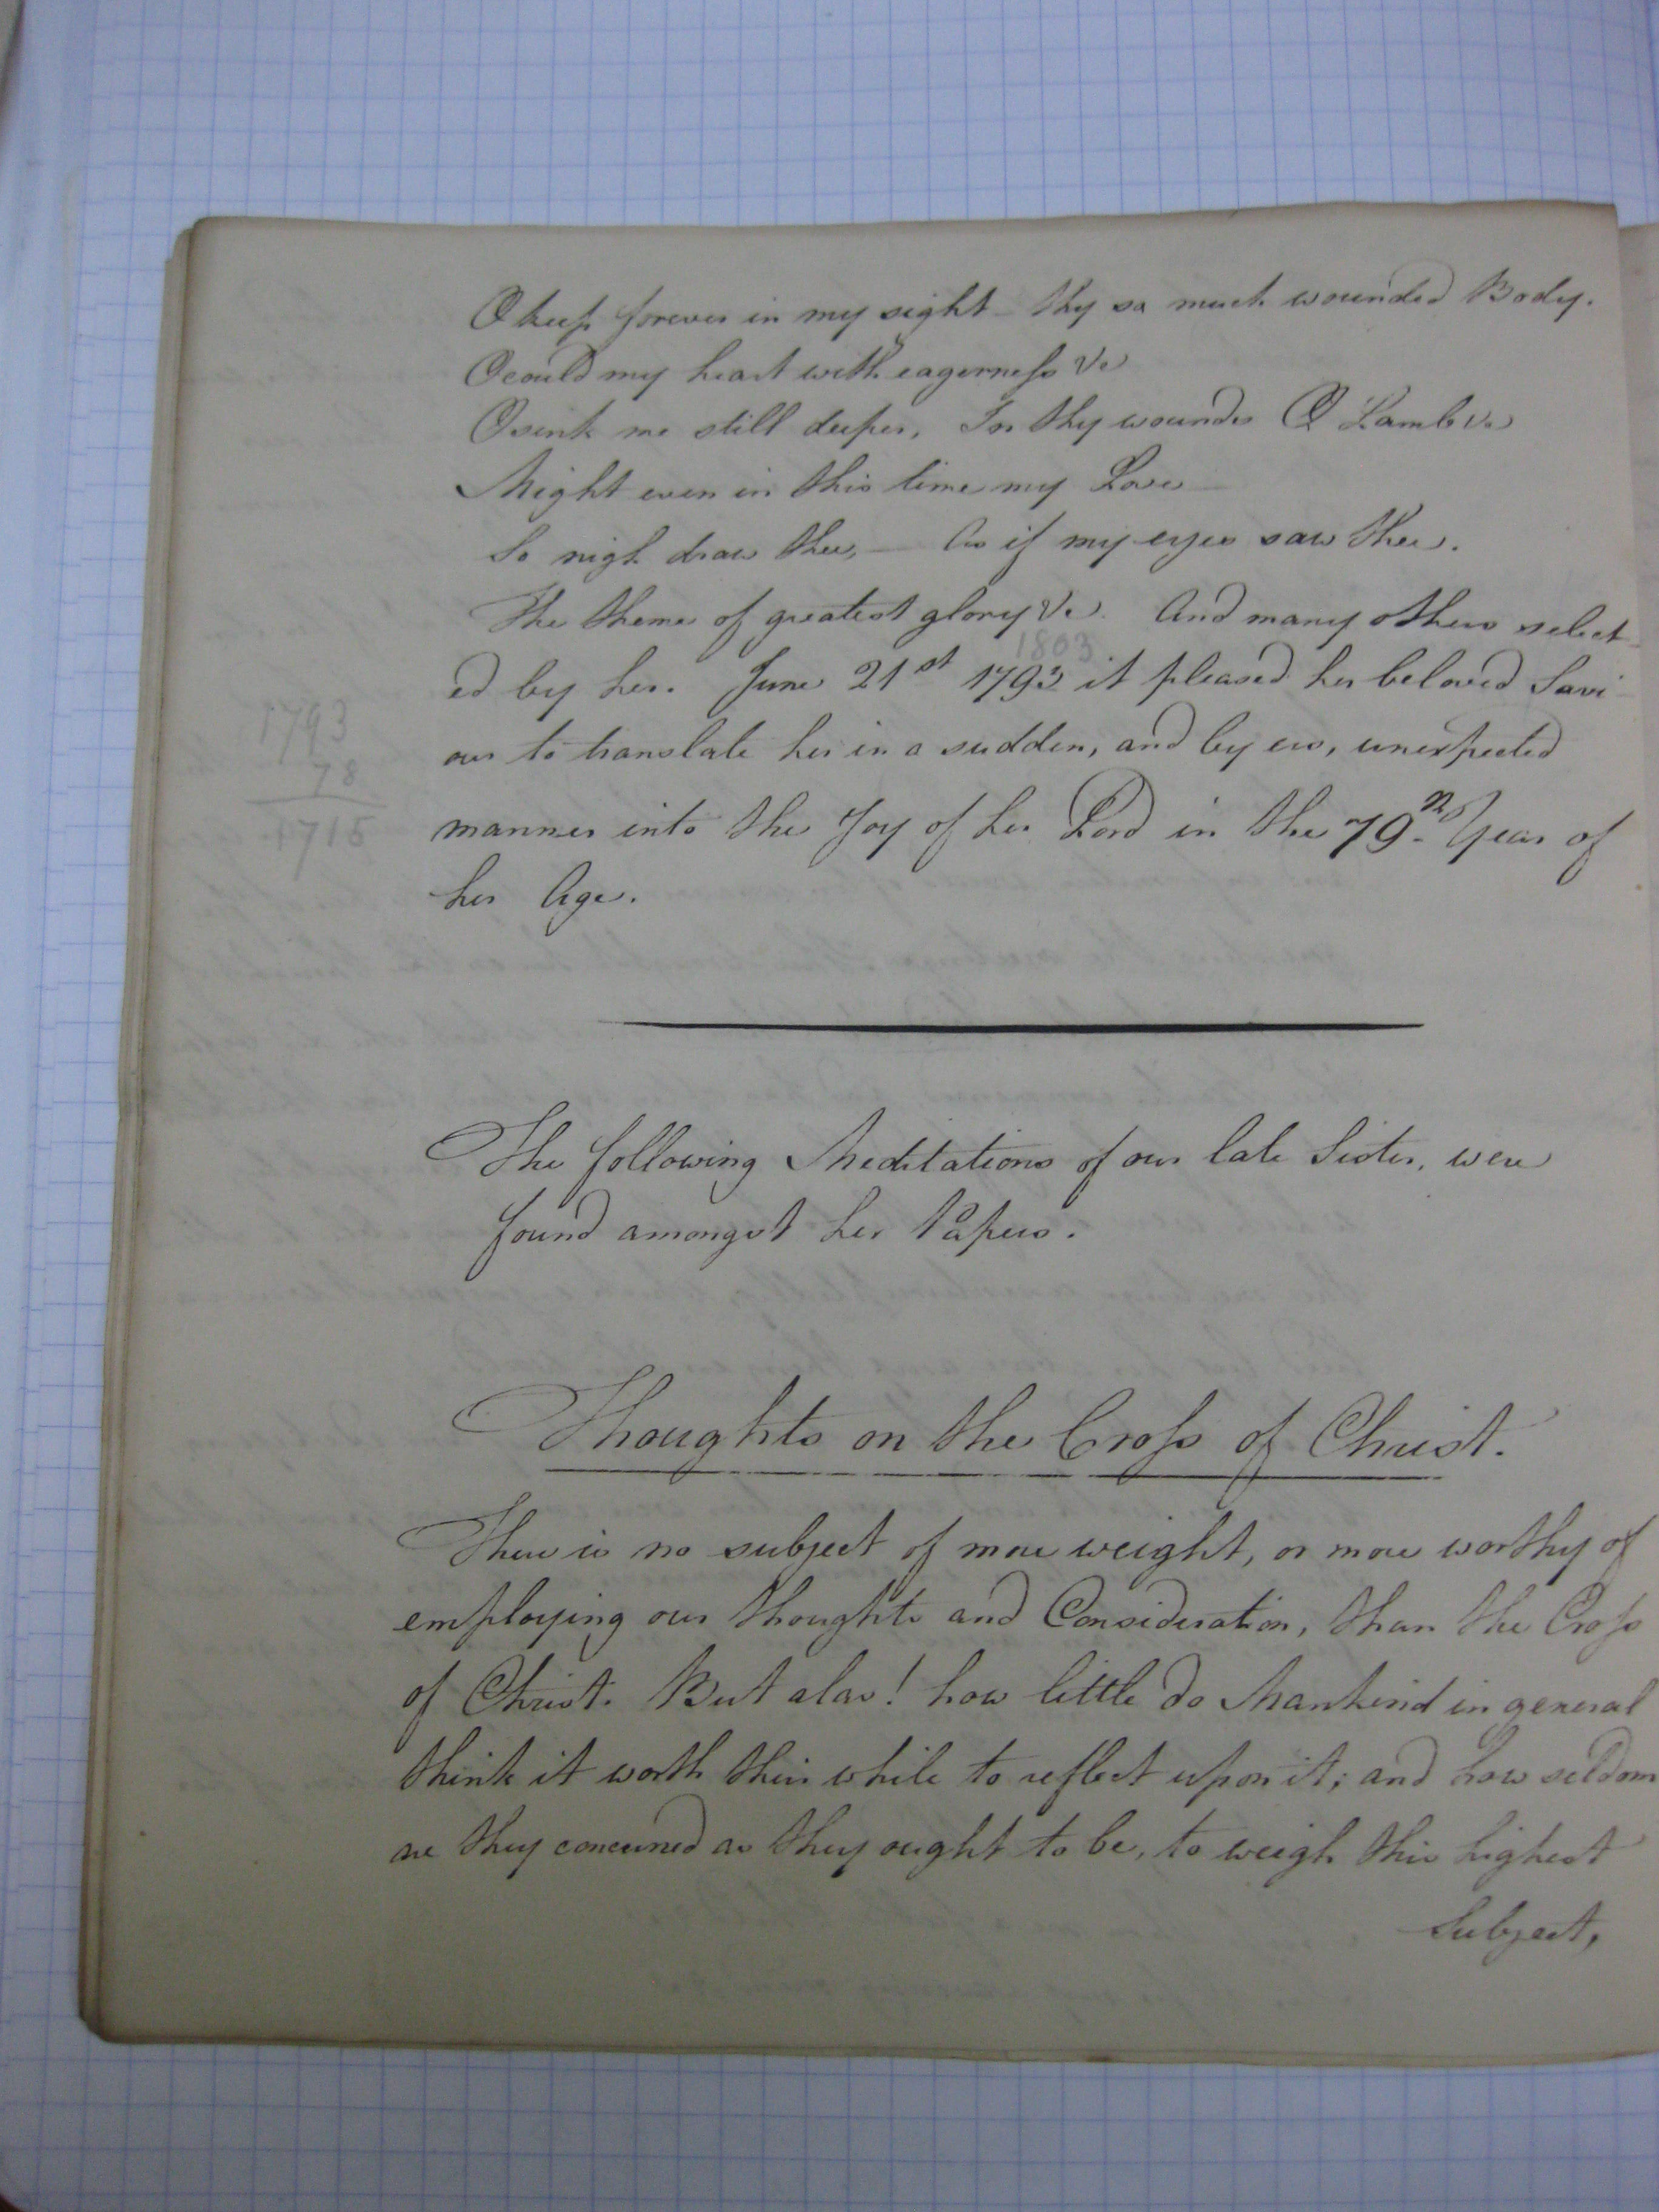 O keep forever in my sight – thy so much wounded Body.
O could my heart with eagerness &c
O sink me still deeper, For thy wounds O Lamb &c
Might even in this time my Love –
So nigh draw thee, – As if my eyes saw thee.
The theme of greatest glory &c. And many others select-
1803
ed by her. June 21st 1793 it pleased her beloved Savi-
our to translate her in a sudden, and by us, unexpected
manner into the Joy of her Lord in the 79th Year of
her Age.
1793
78
1715
The following Meditations of our late Sister, were
found amongst her Papers.
Thoughts on the Cross of Christ.
There is no subject of more weight, or more worthy of
employing our thoughts and Consideration, than the Cross
of Christ. But alas! how little do Mankind in general
think it worth their while to reflect upon it; and how seldom
are they concerned as they ought to be, to weigh this highest
Subject,